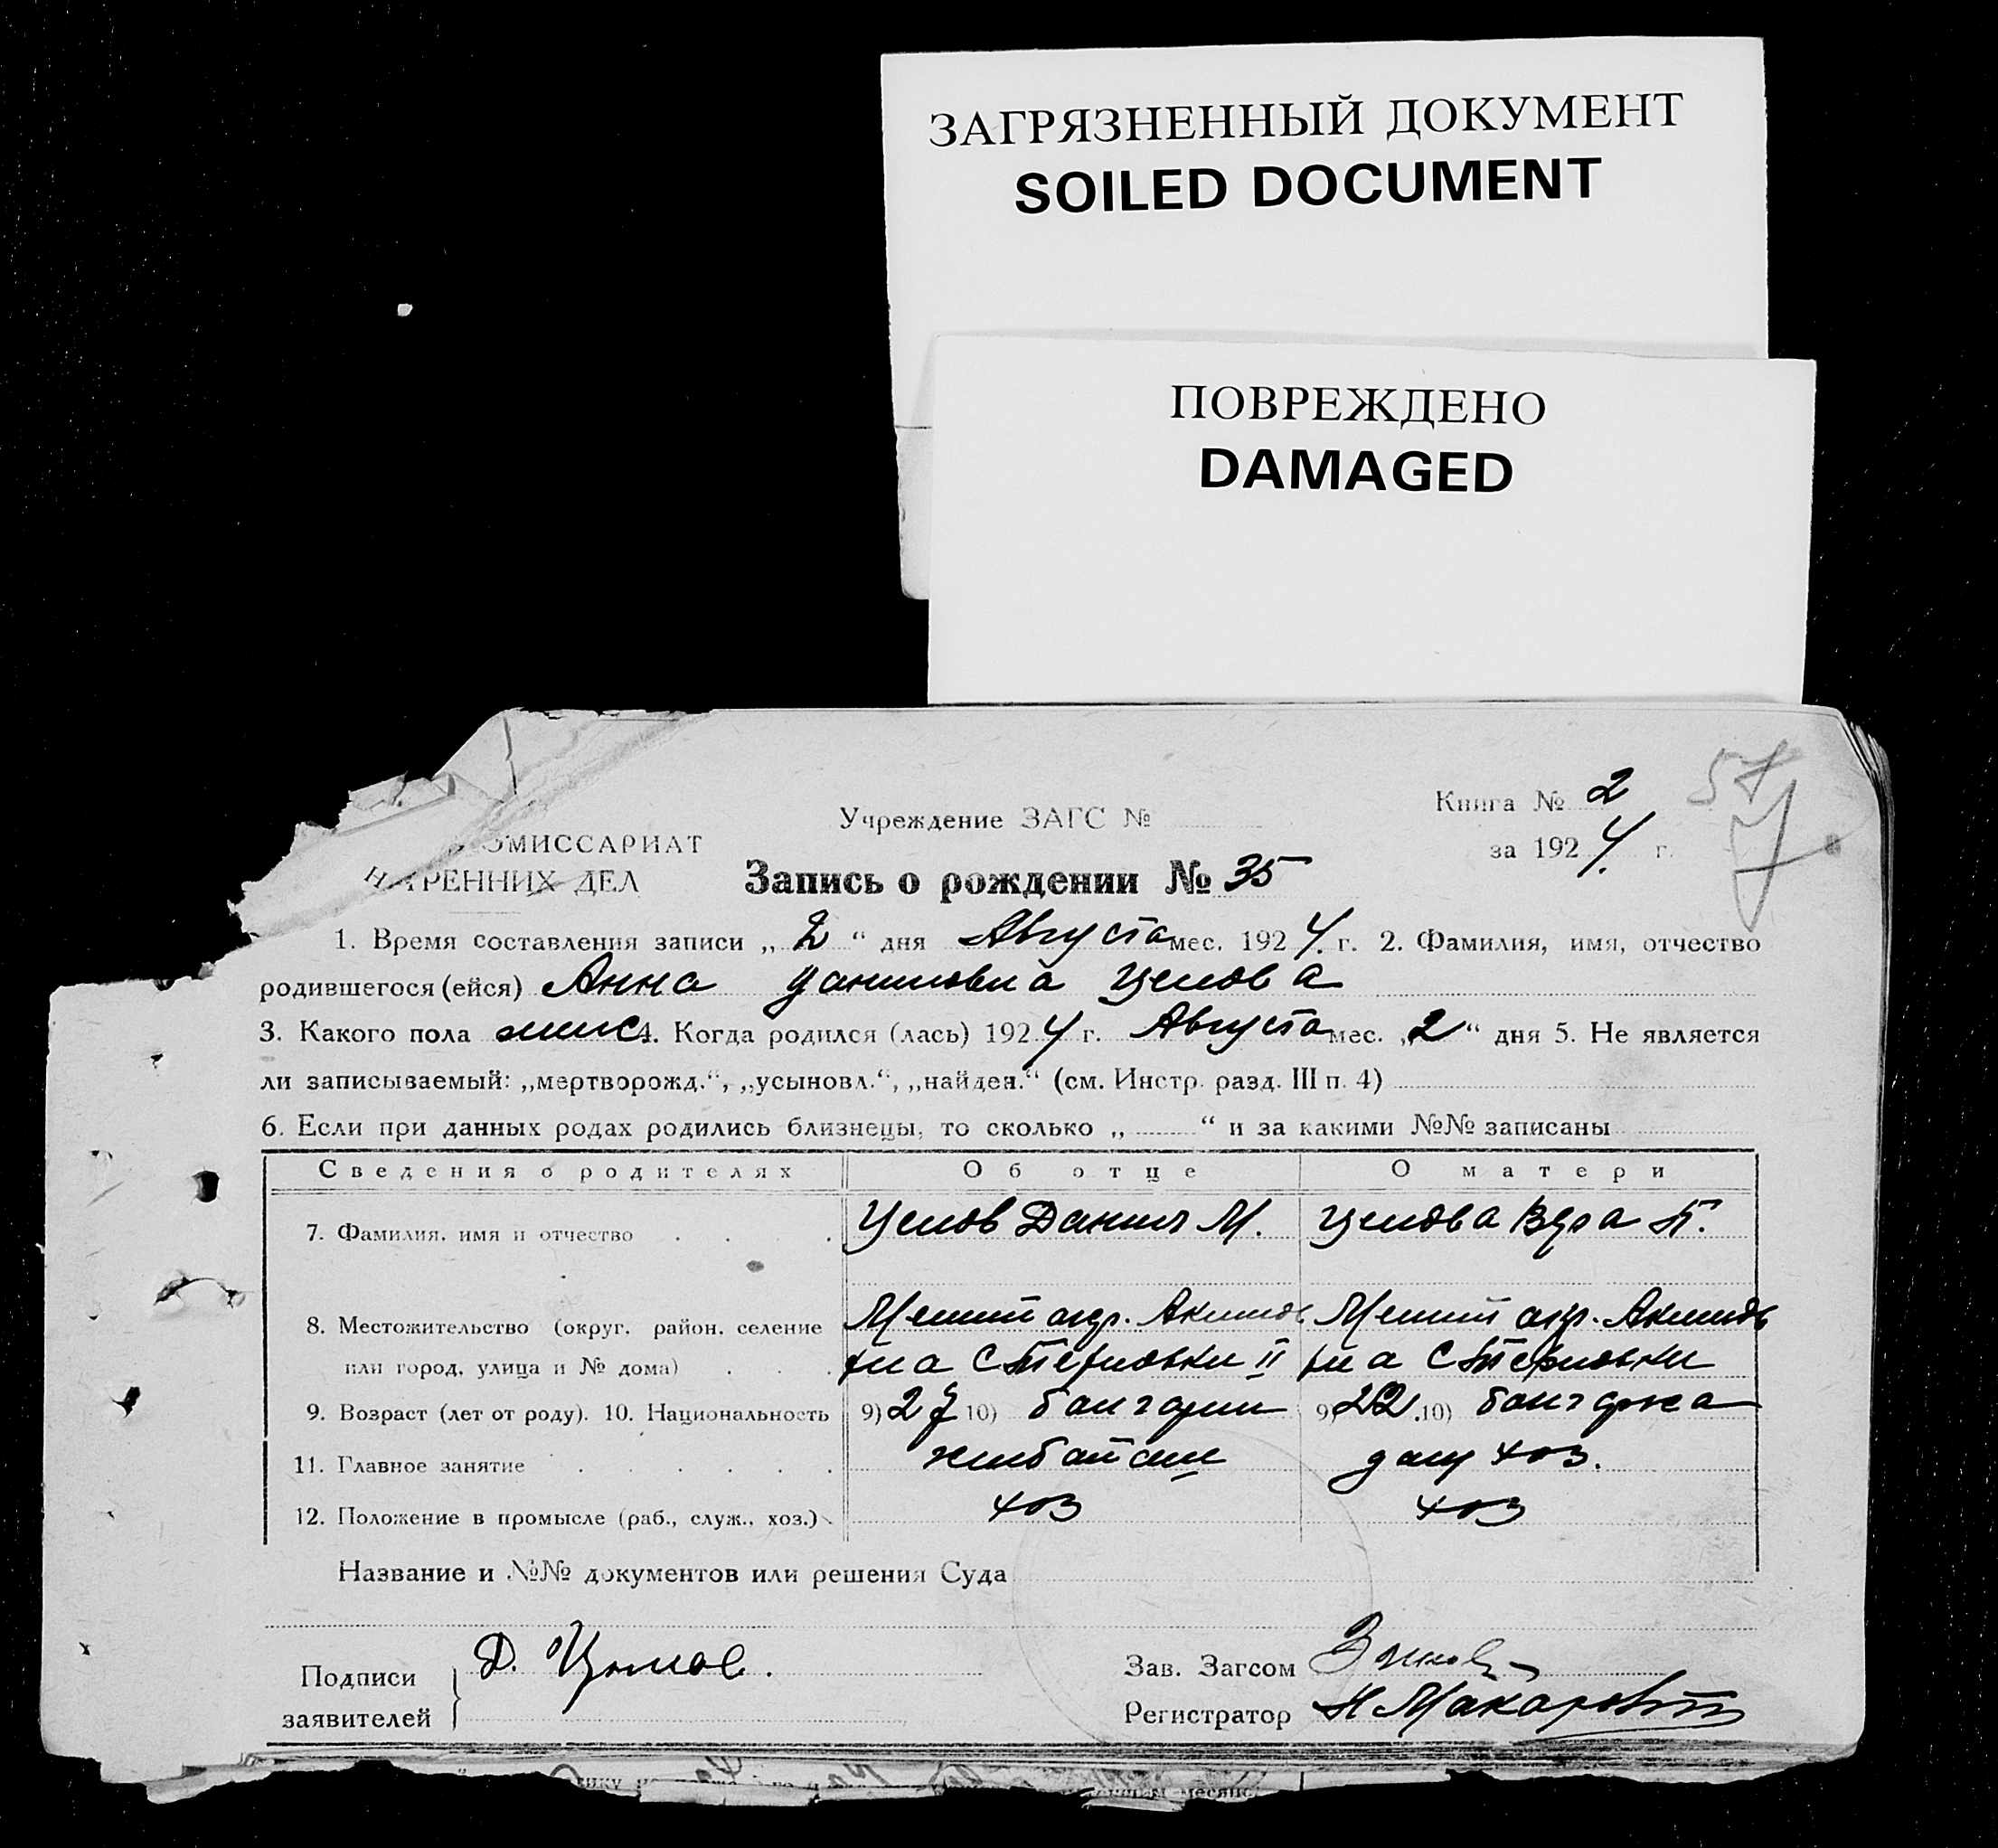 ЗАГРЯЗНЕННЫЙ ДОКУМЕНТ
SOILED DOCUMENT
ПОВРЕЖДЕНО
DAMAGED
57
Книга № 2
Учреждение ЗАГС №
за 1924 г.
ОМИССАРИАТ
ТРЕННИХ ДЕЛ
Запись о рождении № 35
1. Время составления записи „ 2 “ дня Августа мес. 1924. г. 2. Фамилия, имя, отчество
родившегося (ейся) Анна Даниловна Цепова
3. Какого пола 4. Когда родился (лась) 1924 г. Августа мес. „2“ дня 5. Не является
ли записываемый: „мертворожд.“, „усыновл.“, „найден.“ (см. Инстр. разд. III п. 4)
6. Если при данных родах родились близнецы, то сколько „ “ и за какими №№ записаны
Сведения о родителях Об отце О матери
7. Фамилия, имя и отчество Данил М. Вера П.
8. Местожительство (округ, район, селение Акимов Акимов
или город, улица и № дома) на С Терновки II на С Терновки
9. Возраст (лет от роду). 10. Национальность 9) 27 10) болгарин 9) 22. 10) болгарка
11. Главное занятие хлебопаш дом хоз.
12. Положение в промысле (раб., служ., хоз.) хоз хоз
Название и №№ документов или решения Суда
Подписи заявителей Д.
Зав. Загсом
Регистратор Н Макаров